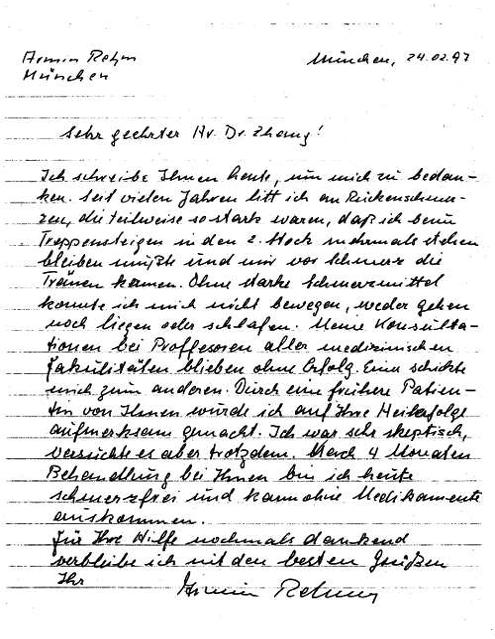 Armin Rehm
München
München, 24.02.97
Sehr geehrter Hr. Dr. Zhang!
Ich schreibe Ihnen heute, um mich zu bedan-
ken. Seit vielen Jahren litt ich an Rückenschmer-
zen, die teilweise so stark waren, daß ich beim
Treppensteigen in den 2. Stock mehrmals stehen
bleiben mußte und mir vor Schmerz die
Tränen kamen. Ohne starke Schmerzmittel
konnte ich mich nicht bewegen, weder gehen
noch liegen oder schlafen. Meine Konsulta-
tionen bei Proffesoren aller medizinischen
Fakulitäten blieben ohne Erfolg. Einer schickte
mich zum anderen. Durch eine frühere Patien-
tin von Ihnen wurde ich auf Ihre Heilerfolge
aufmerksam gemacht. Ich war sehr skeptisch,
versuchte es aber trotzdem. Nach 4 Monaten
Behandlung bei Ihnen bin ich heute
schmerzfrei und kann ohne Medikamente
auskommen.
Für Ihre Hilfe nochmals dankend
verbleibe ich mit den besten Grüßen
Ihr
Armin Rehm